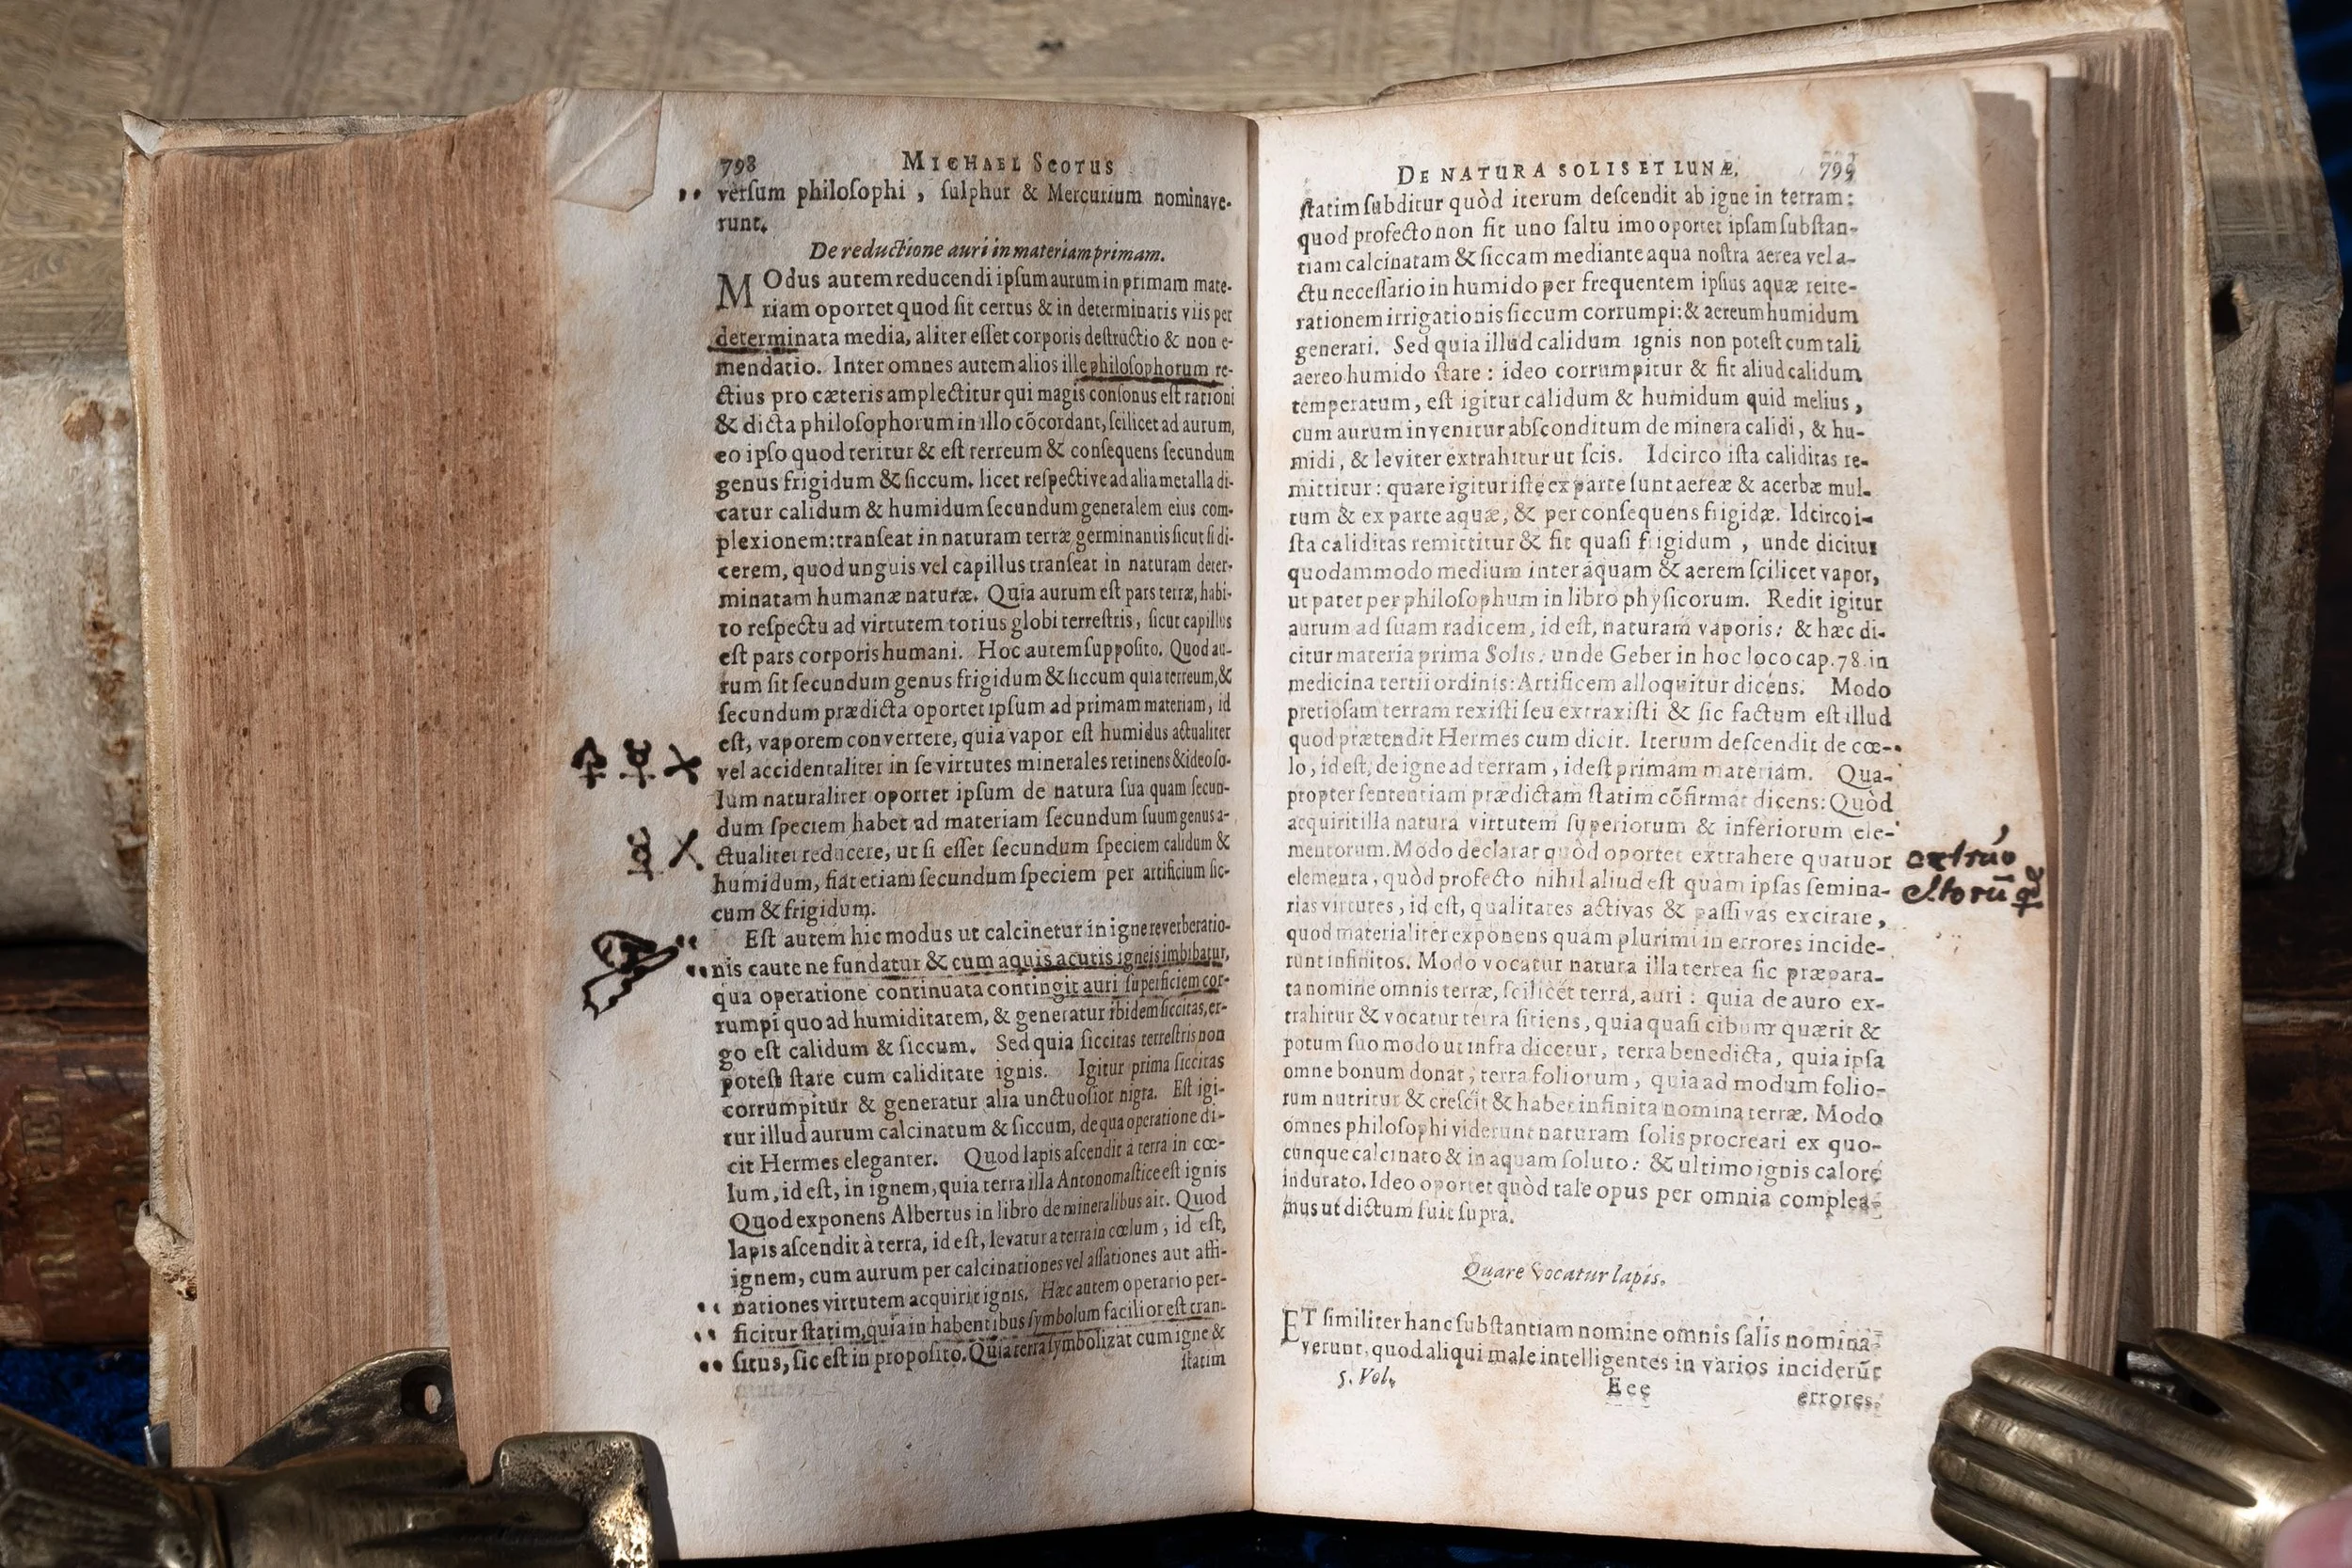 798 MICHAEL SCOTUS
verſum philoſophi , ſulphur & Mercurium nominave-
runt.
De reductione auri in materiam primam.
MOdus autem reducendi ipſum aurum in primam mate-
riam oportet quod ſit certus & in determinatis viis per
determinata media, aliter eſſet corporis deſtructio & non e-
mendatio. Inter omnes autem alios ille philoſophorum re-
ctius pro cæteris amplectitur qui magis conſonus eſt rationi
& dicta philoſophorum in illo cõcordant, ſcilicet ad aurum,
eo ipſo quod teritur & eſt terreum & conſequens ſecundum
genus frigidum & ſiccum. licet reſpective ad alia metalla di-
catur calidum & humidum ſecundum generalem eius com-
plexionem: tranſeat in naturam terræ germinantis ſicut ſi di-
cerem, quod unguis vel capillus tranſeat in naturam deter-
minatam humanæ naturæ. Quia aurum eſt pars terræ, habi-
to reſpectu ad virtutem totius globi terreſtris, ſicut capillus
eſt pars corporis humani. Hoc autem ſuppoſito. Quod au-
rum ſit ſecundum genus frigidum & ſiccum quia terreum, &
ſecundum prædicta oportet ipſum ad primam materiam, id
eſt, vaporem convertere, quia vapor eſt humidus actualiter
vel accidentaliter in ſe virtutes minerales retinens & ideo ſo-
lum naturaliter oportet ipſum de natura ſua quam ſecun-
dum ſpeciem habet ad materiam ſecundum ſuum genus a-
ctualiter reducere, ut ſi eſſet ſecundum ſpeciem calidum &
humidum, fiat etiam ſecundum ſpeciem per artificium ſic-
cum & frigidum.
Eſt autem hic modus ut calcinetur in igne reverberatio-
nis caute ne fundatur & cum aquis acutis igneis imbibatur,
qua operatione continuata contingit auri ſuperficiem cor-
rumpi quo ad humiditatem, & generatur ibidem ſiccitas, er-
go eſt calidum & ſiccum. Sed quia ſiccitas terreſtris non
poteſt ſtare cum caliditate ignis. Igitur prima ſiccitas
corrumpitur & generatur alia unctuoſior nigra. Eſt igi-
tur illud aurum calcinatum & ſiccum, de qua operatione di-
cit Hermes eleganter. Quod lapis aſcendit à terra in cœ-
lum, id eſt, in ignem, quia terra illa Antonomaſtice eſt ignis
Quod exponens Albertus in libro de mineralibus ait. Quod
lapis aſcendit à terra, id eſt, levatur a terra in cœlum, id eſt,
ignem, cum aurum per calcinationes vel aſſationes aut aſſi-
nationes virtutem acquirit ignis. Hæc autem operatio per-
ficitur ſtatim, quia in habentibus ſymbolum facilior eſt tran-
ſitus, ſic eſt in propoſito. Quia terra ſymbolizat cum igne &
ſtatim
DE NATURA SOLIS ET LUNÆ. 799
ſtatim ſubditur quòd iterum deſcendit ab igne in terram:
quod profecto non fit uno ſaltu imo oportet ipſam ſubſtan-
tiam calcinatam & ſiccam mediante aqua noſtra aerea vel a-
ctu neceſſario in humido per frequentem ipſius aquæ reite-
rationem irrigationis ſiccum corrumpi: & aereum humidum
generari. Sed quia illud calidum ignis non poteſt cum tali
aereo humido ſtare : ideo corrumpitur & fit aliud calidum
temperatum, eſt igitur calidum & humidum quid melius ,
cum aurum invenitur abſconditum de minera calidi, & hu-
midi, & leviter extrahitur ut ſcis. Idcirco iſta caliditas re-
mittitur : quare igitur iſte ex parte ſunt aereæ & acerbæ mul-
tum & ex parte aquæ, & per conſequens frigidæ. Idcirco i-
ſta caliditas remittitur & fit quaſi frigidum , unde dicitur
quodammodo medium inter aquam & aerem ſcilicet vapor,
ut patet per philoſophum in libro phyſicorum. Redit igitur
aurum ad ſuam radicem, id eſt, naturam vaporis: & hæc di-
citur materia prima Solis: unde Geber in hoc loco cap. 78. in
medicina tertii ordinis: Artificem alloquitur dicens. Modo
pretioſam terram rexiſti ſeu extraxiſti & ſic factum eſt illud
quod prætendit Hermes cum dicit. Iterum deſcendit de cœ-
lo, id eſt, de igne ad terram, id eſt primam materiam. Qua-
propter ſententiam prædictam ſtatim cõfirmat dicens: Quòd
acquirit illa natura virtutem ſuperiorum & inferiorum ele-
mentorum. Modo declarat quòd oportet extrahere quatuor
elementa, quòd profecto nihil aliud eſt quam ipſas ſemina-
rias virtutes, id eſt, qualitates activas & paſſivas excitare ,
quod materialiter exponens quam plurimi in errores incide-
runt infinitos. Modo vocatur natura illa terrea ſic præpara-
ta nomine omnis terræ, ſcilicet terra, auri : quia de auro ex-
trahitur & vocatur terra ſitiens, quia quaſi cibum quærit &
potum ſuo modo ut infra dicetur, terra benedicta, quia ipſa
omne bonum donat, terra foliorum, quia ad modum folio-
rum nutritur & creſcit & habet infinita nomina terræ. Modo
omnes philoſophi viderunt naturam ſolis procreari ex quo-
cunque calcinato & in aquam ſoluto: & ultimo ignis calore
indurato. Ideo oportet quòd tale opus per omnia complea-
mus ut dictum fuit ſupra.
Quare vocatur lapis.
ET ſimiliter hanc ſubſtantiam nomine omnis ſalis nomina-
verunt, quod aliqui male intelligentes in varios inciderũt
5. Vol. Eee errores.